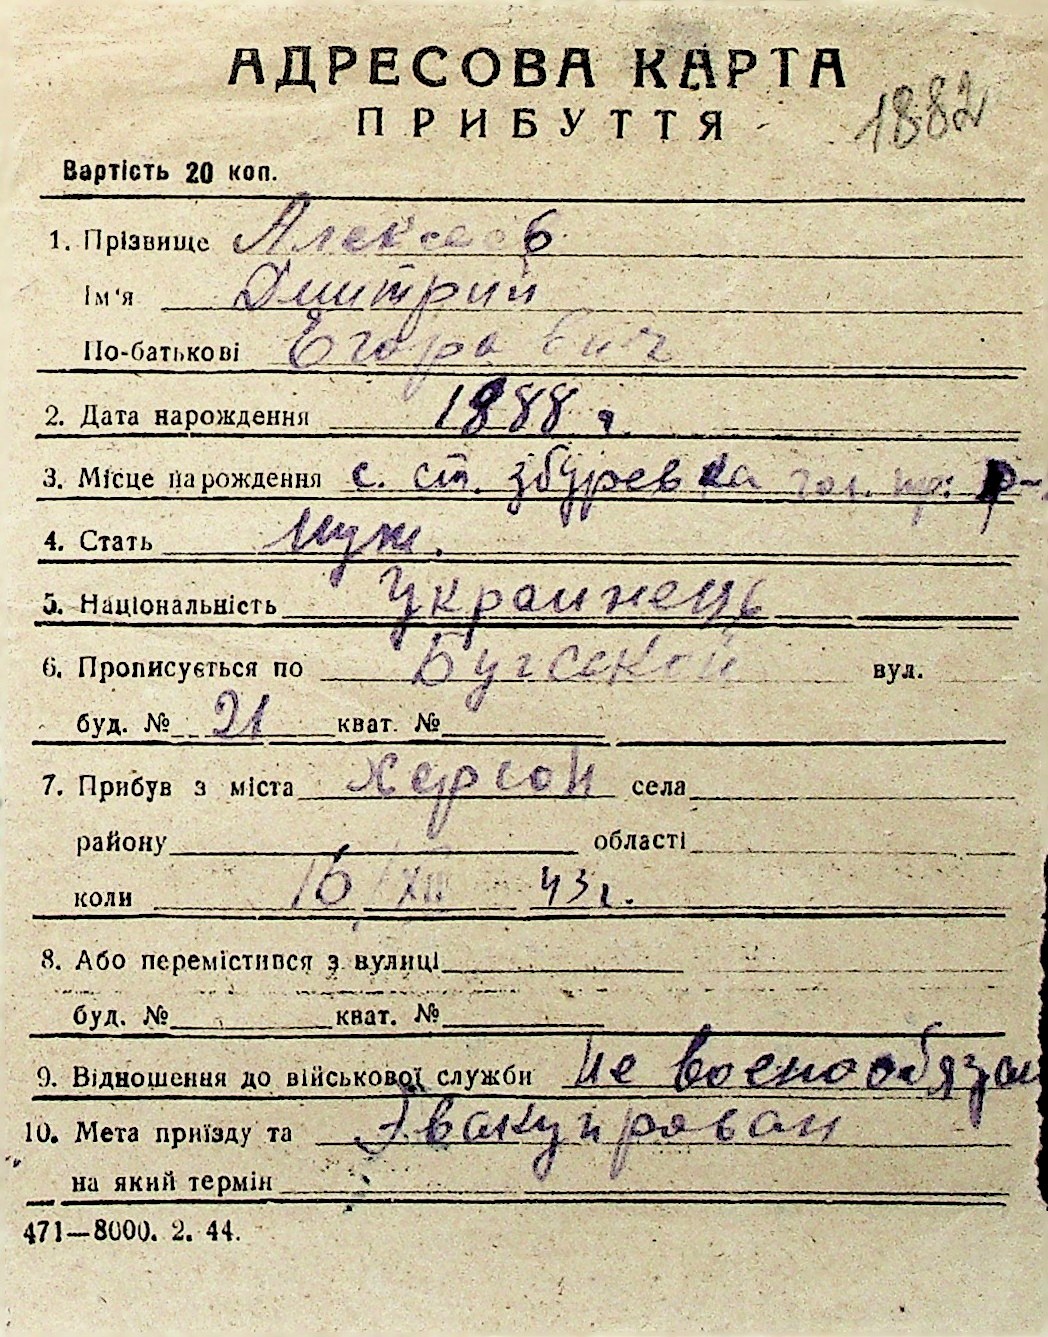 АДРЕСОВА КАРТА
ПРИБУТТЯ
1882
Вартість 20 коп.
1. Прізвище Алексеев
Ім'я Дмитрий
По-батькові Егоравич
2. Дата народження 1888 г.
3. Місце народження с. ст. збуревка гол. пр. р-
4. Стать муж.
5. Національність Украинець
6. Прописується по Бугсской вул.
буд. № 21 кват. №
7. Прибув з міста Херсон села
району області
коли 16 XII 43 г.
8. Або перемістився з вулиці
буд. № кват. №
9. Відношення до військової служби не военообязан
10. Мета приїзду та Эвакуирован
на який термін
471—8000. 2. 44.